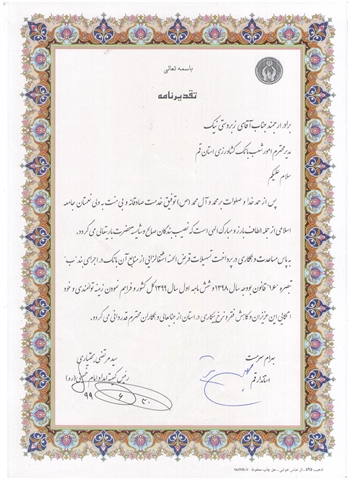 باسمه تعالی
تقدیرنامه
برادر ارجمند جناب آقای زبردستی نیک
مدیر محترم امور شعب بانک کشاورزی استان قم
سلام علیکم
پس از حمد خدا و صلوات بر محمد و آل محمد (ص) توفیق خدمت صادقانه و بی منت به ولی نعمتان جامعه
اسلامی از جمله الطاف بارز و مبارک الهی است که نصیب بندگان صالح و شایسته حضرت باریتعالی می گردد.
به پاس مساعدت و همکاری در پرداخت تسهیلات قرض الحسنه اشتغالزایی از منابع آن بانک در اجرای بند "ب"
تبصره "۱۶" قانون بودجه سال ۱۳۹۸ و شش ماهه اول سال ۱۳۹۹ کل کشور و فراهم نمودن زمینه توانمندی و خود
اتکایی این عزیزان و کاهش فقر و نرخ بیکاری در استان از جنابعالی و همکاران محترم قدردانی می گردد.
بهرام سرمست
استاندار قم
سید مرتضی بختیاری
رئیس کمیته امداد امام خمینی (ره)
۹۹ ۶ ۳۰